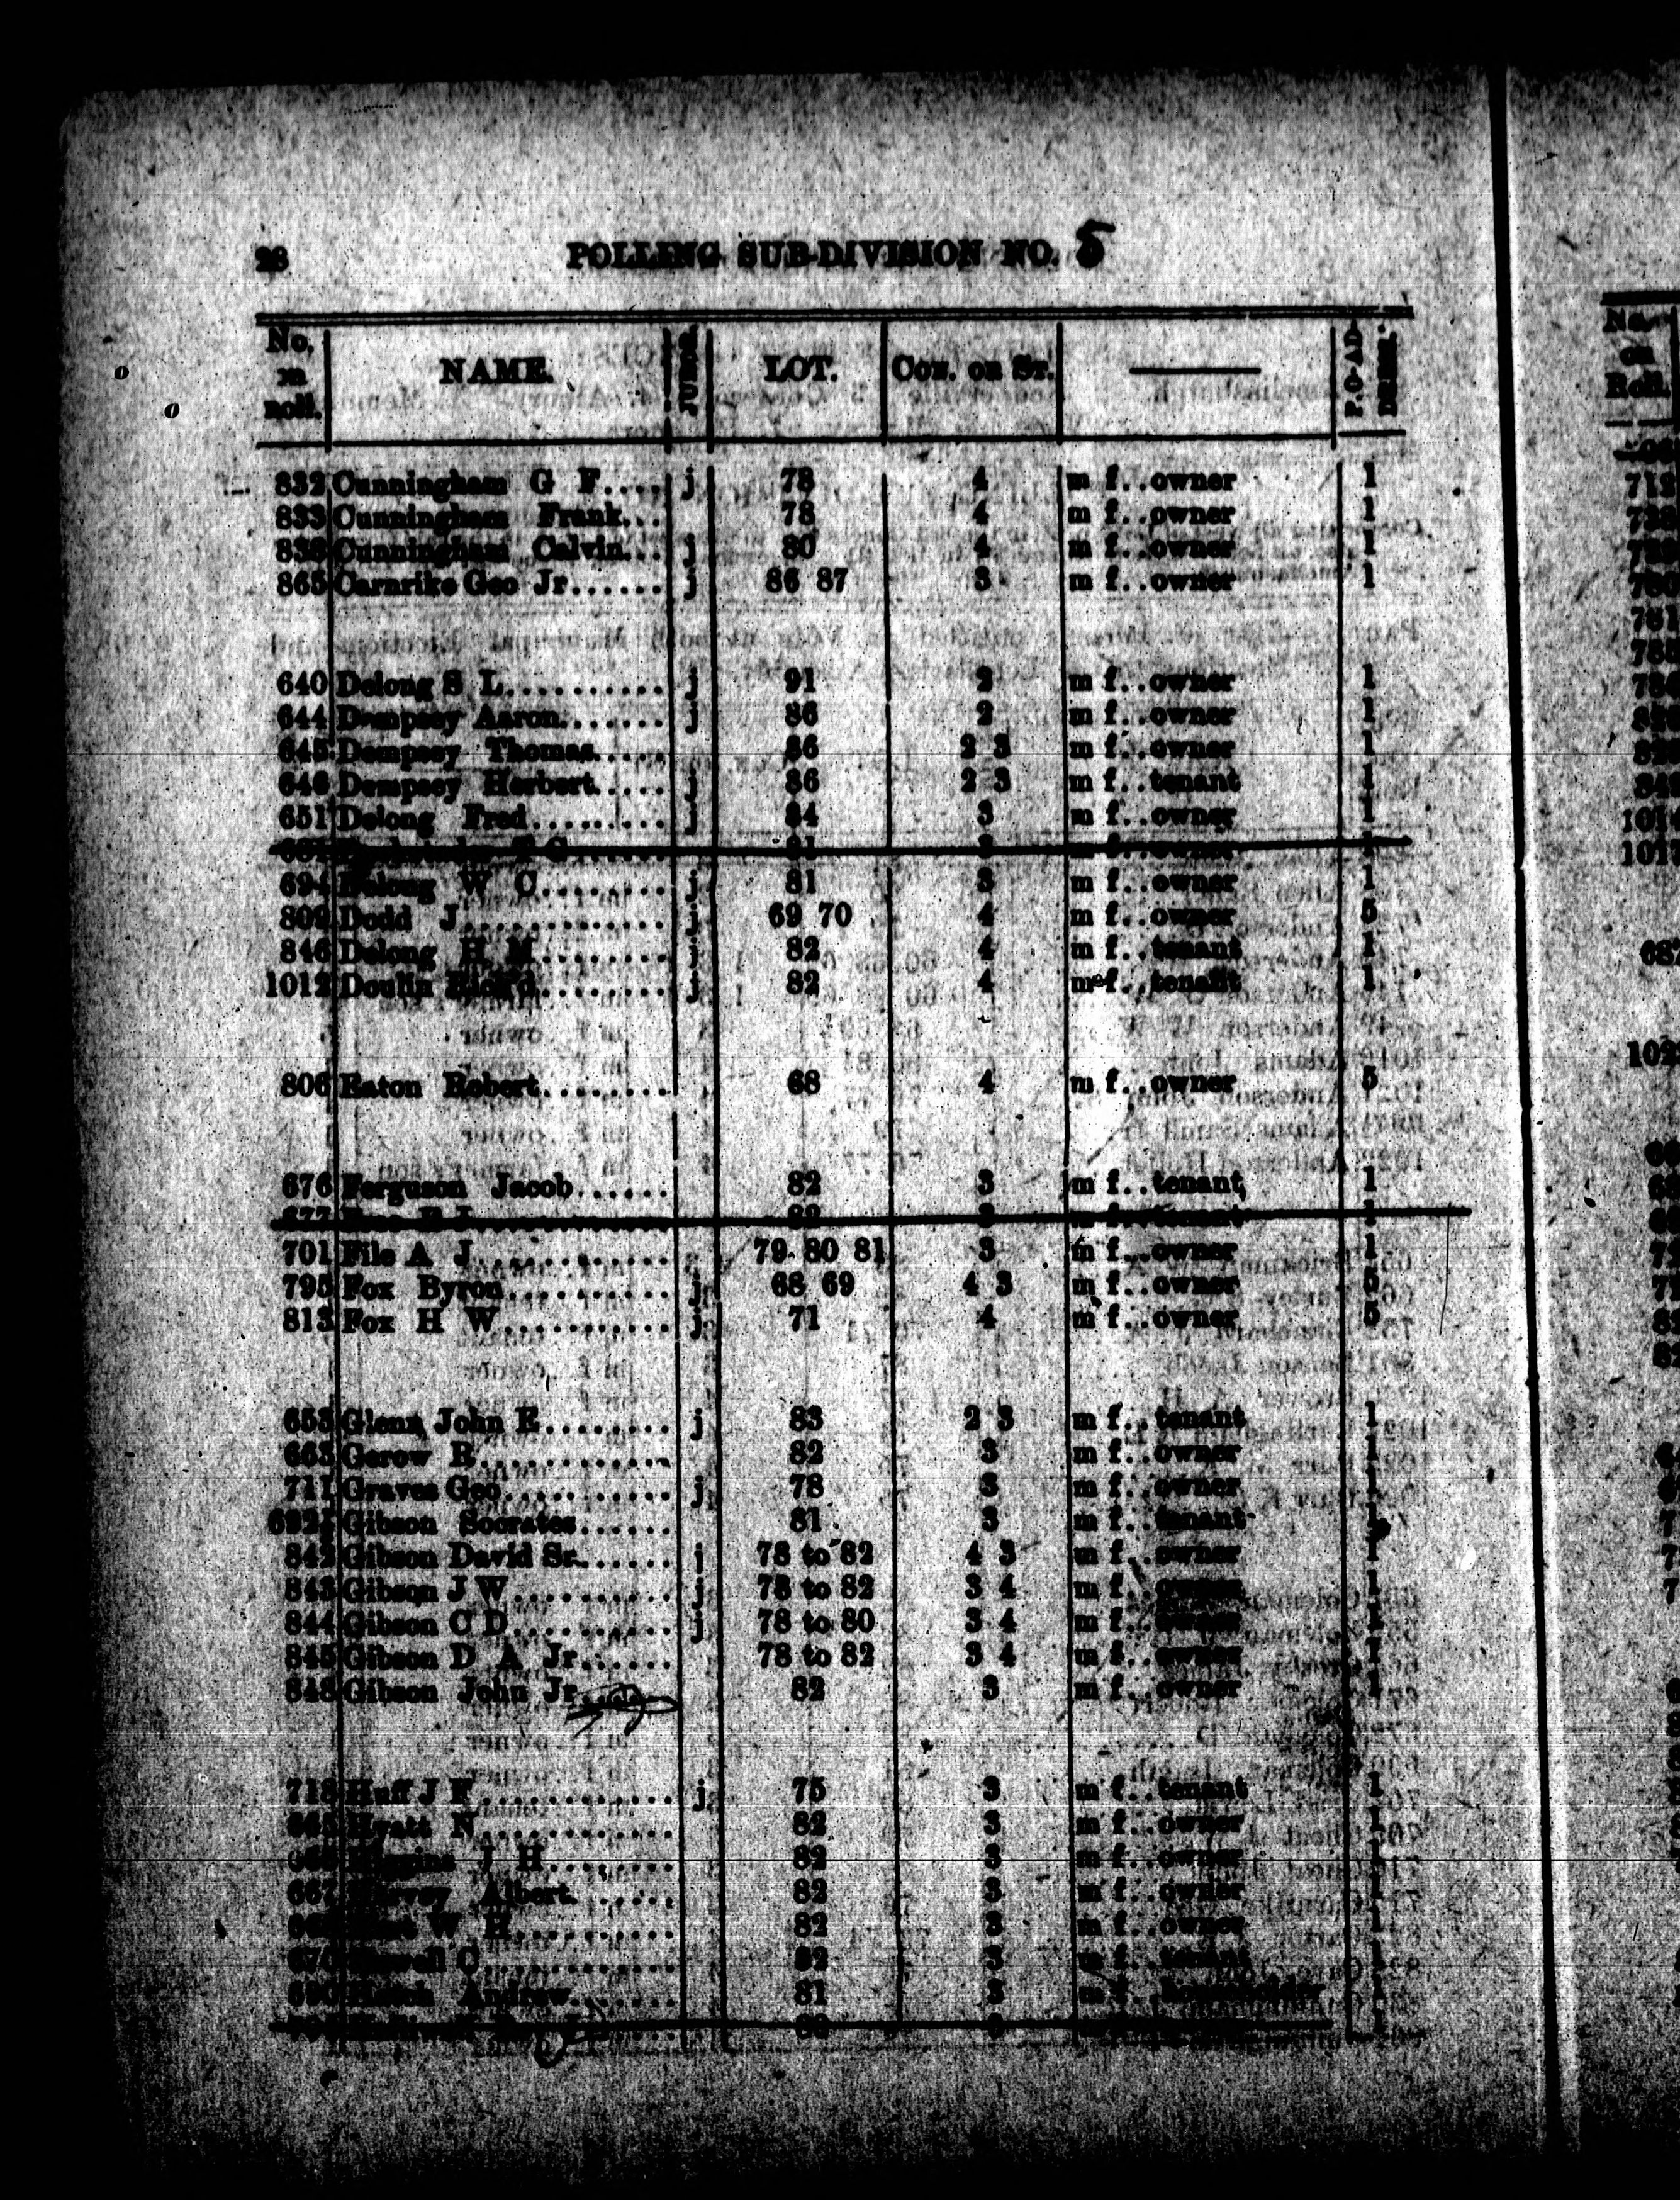 28 POLLING SUB-DIVISION NO. 5
No. on roll. NAME. JURORS. LOT. Con. or St. P.O. ADDRESS.
832 Cunningham G F.... j 78 4 m f..owner 1
833 Cunningham Frank... 78 4 m f..owner 1
836 Cunningham Calvin... j 80 4 m f..owner 1
865 Carnrike Geo Jr...... j 86 87 3 m f..owner 1
640 Delong S L.......... j 91 2 m f..owner 1
644 Dempsey Aaron....... j 86 2 m f..owner 1
645 Dempsey Thomas..... 86 2 3 m f..owner 1
646 Dempsey Herbert..... j 86 2 3 m f..tenant 1
651 Delong Fred......... j 84 3 m f..owner 1
81 owner
694 Delong W C........ j 81 3 m f..owner 1
809 Dodd J............ j 69 70 4 m f..owner 5
846 Delong H M........ j 82 4 m f..tenant 1
1012 Doulin Rich'd........ j 82 4 m f..tenant 1
806 Eaton Robert........ 68 4 m f..owner 5
676 Ferguson Jacob...... 82 3 m f..tenant 1
677 82 tenant
701 File A J............ 79 80 81 3 m f..owner 1
795 Fox Byron.......... j 68 69 4 3 m f..owner 5
813 Fox H W........... j 71 4 m f..owner 5
655 Glenn John E........ j 83 2 3 m f..tenant 1
663 Gerow B............ 82 3 m f..owner 1
711 Graves Geo.......... j 78 3 m f..owner 1
Gibson Socrates...... 81 3 m f..tenant 1
842 Gibson David Sr...... j 78 to 82 4 3 m f..owner 1
843 Gibson J W.......... j 78 to 82 3 4 m f..owner 1
844 Gibson C D.......... j 78 to 80 3 4 m f.. 1
845 Gibson D A Jr...... 78 to 82 3 4 m f..owner 1
848 Gibson John Jr 82 3 m f..owner 1
718 Huff J F............ j 75 3 m f..tenant 1
665 Hyatt N............ 82 3 m f..owner 1
Higgins J H........ 82 3 m f..owner 1
667 Harvey Albert....... 82 3 m f..owner 1
W H.......... 82 3 m f..owner 1
C............ 82 3 m f..tenant 1
690 Andrew....... 81 3 m f..householder 1